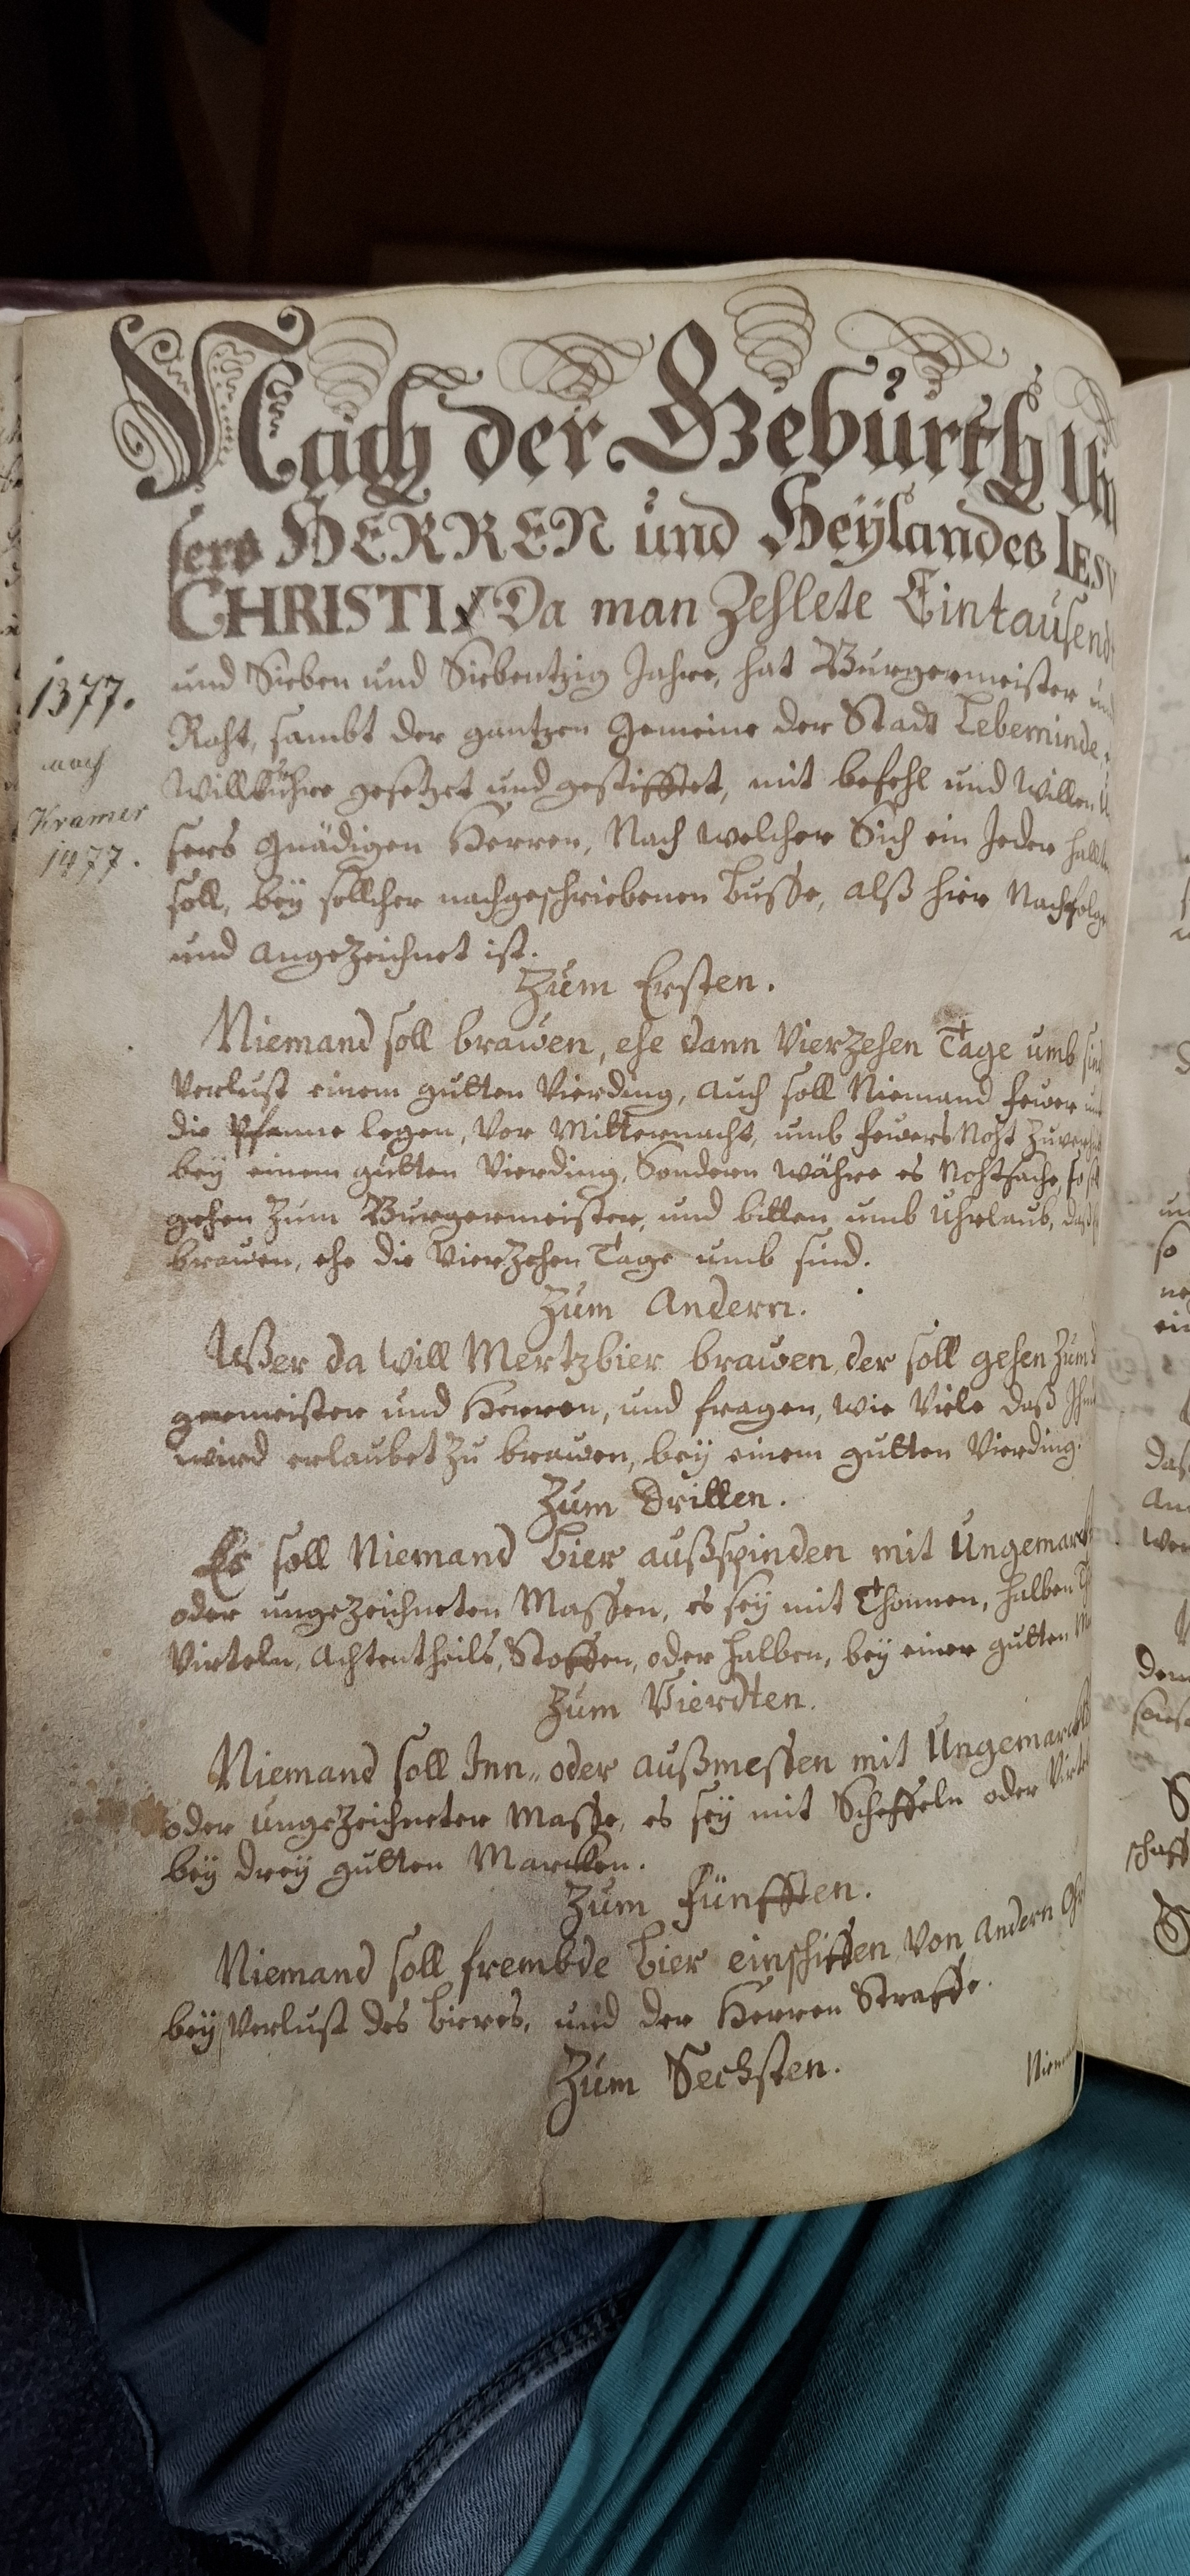 Nach der Gebürth Un
sers HERREN und Heÿlandes IESV
CHRISTI / Da man Zehlete Eintausend
und Sieben und Siebentzig Jahre, hat Burgermeister und
Raht, sambt der gantzen Gemeine der Stadt Lebeminde,
Willkühre gesetzet und gestifftet, mit befehl und Willen U
sers Gnädigen Herren, Nach welcher Sich ein Jeder hallt
soll, beÿ sollcher nachgeschriebenen Busse, alß hier Nachfolg
und angezeichnet ist.
1377.
nach
Kramer
1477.
Zum Ersten.
Niemand soll brawen, ehe dann Vierzehen Tage umb sind
Verlust einem gutten Vierding, auch soll Niemand fewer un
die Pfanne legen, Vor Mitternacht, umb fewers Noht Zuver
beÿ einem gutten Vierding, Sondern währe es Nohtsache, so
gehen Zum Burgermeister, und bitten umb Uhrlaub, daß
brawen, ehe die Vierzehen Tage umb sind.
Zum Andern.
Wer da will Mertzbier brawen, der soll gehen Zum
germeister und Herren, und fragen, wie Viele daß Ihm
wird erlaubet Zu brawen, beÿ einem gutten Vierding.
Zum Dritten.
Es soll Niemand Bier außspinden mit Ungemarck
oder ungezeichneten Massen, es seÿ mit Thonnen, halben
Virteln, Achtentheils, Stoffen, oder halben, beÿ einer gutten
Zum Vierdten.
Niemand soll Inn- oder außmessen mit Ungemarckt
oder ungezeichneter Masse, es seÿ mit Scheffeln oder Virt
beÿ dreÿ gutten Marcken.
Zum Fünfften.
Niemand soll frembde Bier einschiffen Von andern
beÿ Verlust des Bieres, und der Herren Straffe.
Zum Sechsten.
Niem